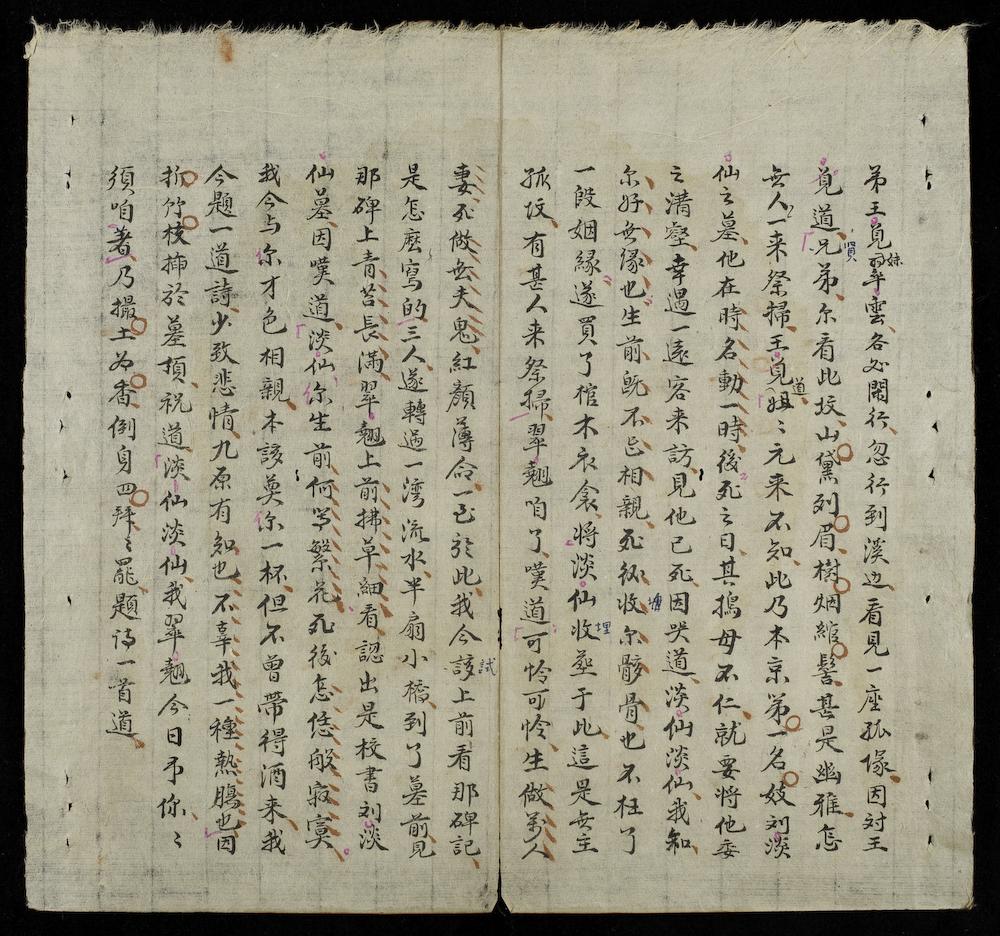 弟王覓翠雲各處閑行忽行到溪边看見一座孤塚因对王
覓道兄弟尔看此坟山黛列眉樹烟綰髻甚是幽雅怎
無人一来祭掃王覓道姐〻元来不知此乃本京第一名妓刘淡
仙之墓他在時名動一時後死之日其搗母不仁就要将他委
之溝壑幸遇一遠客来訪見他已死因哭道淡仙淡仙我知
尔好無缘也生前既不𠃔相親死後收尔骸骨也不枉了
一段姻緣遂買了棺木衣衾将淡仙收埋塟于此這是無主
孤坟有甚人来祭掃翠翹咱了嘆道可怜可怜生做萬人
妻死做無夫鬼紅顏薄命一至於此我今該試上前看那碑記
是怎麽寫的三人遂轉過一湾流水半扇小橋到了墓前見
那碑上青苔長滿翠翹上前拂草細看認出是校書刘淡
仙墓因嘆道淡仙尔生前何等繁花死後怎恁般寂寞
我今与尔才色相親本該奠尔一杯但不曾帶得酒来我
今題一道詩少致悲情九原有知也不辜我一種熱腸也因
折竹枝插於墓頂祝道淡仙淡仙我翠翹今日弔你〻
須咱著乃撮土为香倒身四拜〻罷題詩一首道